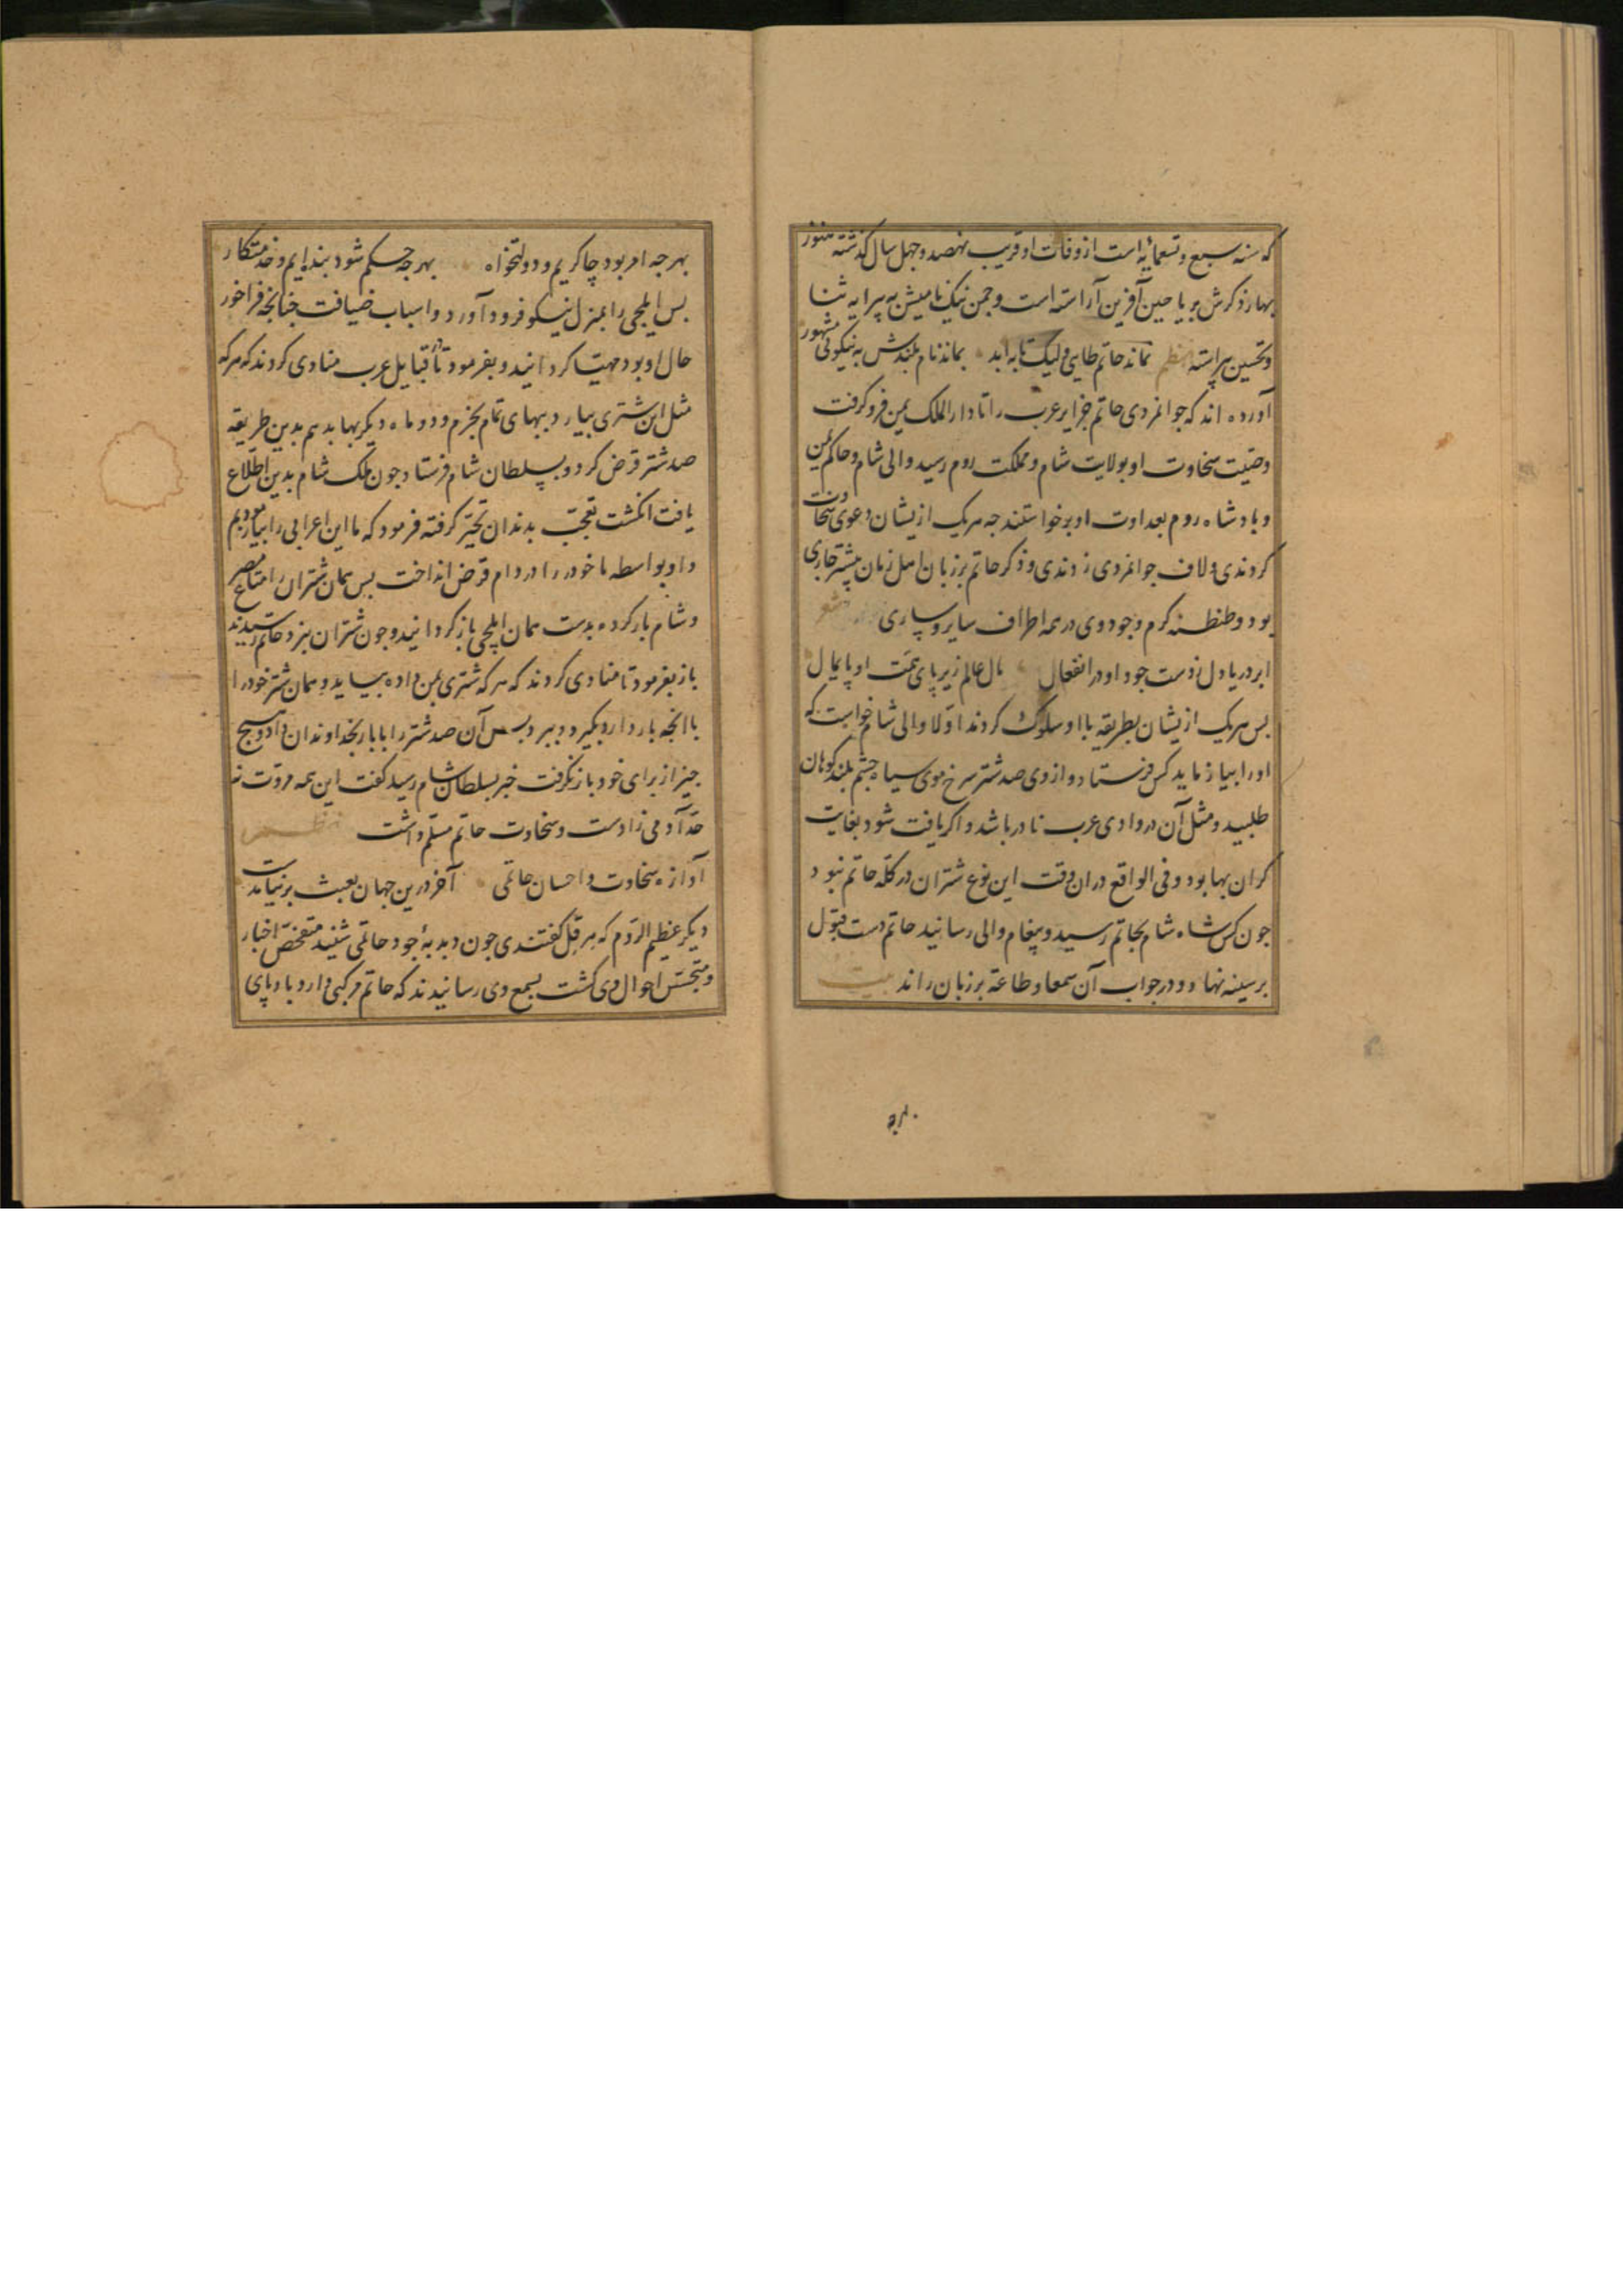 که سنه سبع و تسعمایة است از وفات او قریب نهصد و چهل سال گذشته هنوز
بهار ذکرش بریاحین آفرین آراسته است و چمن نیکنامیش به پیرایه ثنا
و تحسین پیراسته نظم نماند حاتم طایی ولیک تا به ابد بماند نام بلندش به نیکوئی مشهور
آورده اند که جوانمردی حاتم جزایر عرب را تا دار الملک یمن فرو گرفت
وصیت سخاوت او بولایت شام و مملکت روم رسید والی شام و حاکم یمن
و پادشاه روم بعداوت او برخواستند چه هریک ازیشان دعوی سخاوت
کردندی و لاف جوانمردی زدندی و ذکر حاتم بر زبان اهل زمان بیشتر جاری
بود و طنطنه کرم و جود وی در همه اطراف سایر و ساری شعر
ابر دریا دل ز دست جود او در انفعال مال عالم زیر پای همت او پایمال
بس هریک ازیشان بطریقه با او سلوک کردند اولا والی شام خواست که
اورا بیازماید کس فرستاد و از وی صد شتر سرخ موی سیاه چشم بلند کوهان
طلبید و مثل آن در وادی عرب نادر باشد و اگر یافت شود بغایت
گران بها بود و فی الواقع دران وقت این نوع شتران در گله حاتم نبود
جون کس شاه شام بحاتم رسید و پیغام والی رسانید حاتم دست قبول
بر سینه نهاد و در جواب آن سمعا و طاعة بر زبان راند بیت
بهرجه امر بود چاکریم و دولتخواه بهرجه حکم شود بنده ایم و خدمتکار
بس ایلچی را بمنزل نیکو فرود آورد و اسباب ضیافت جنانجه فراخور
حال او بود مهیا کردانید و بفرمود تا در قبایل عرب منادی کردند که هرکه
مثل این شتری بیارد ببهای تمام بخرم و دو ماه دیگر بها بدهم بدین طریقه
صد شتر قرض کرد و بسلطان شام فرستاد جون ملک شام بدین اطلاع
یافت انگشت تعجب بدندان تحیر گرفته فرمود که ما این اعرابی را بیازمودیم
و او بواسطه ما خود را در دام قرض انداخت بس همان شتران را متاع مصر
و شام بار کرده بدست همان ایلچی باز گردانید و جون شتران بنزد حاتم رسیدند
باز بفرمود تا منادی کردند که هرکه شتری بمن داده بیاید و همان شتر خود را
با انجه بار دارد بگیرد و ببرد بس آن صد شتر را با بار بخداوندان داد و هیچ
جیز از برای خود باز نگرفت خبر بسلطان شام رسید گفت این همه مروت نه
حد آدمی زادست و سخاوت حاتم مسلم داشت نظم
آوازه سخاوت و احسان حاتمی آخر درین جهان بعبث برنیامدست
دیگر عظیم الروم که هرقل گفتندی جون دبدبهٔ جود حاتمی شنید متفحص اخبار
و متجسس احوال وی گشت بسمع وی رسانیدند که حاتم مرکبی دارد باد پای